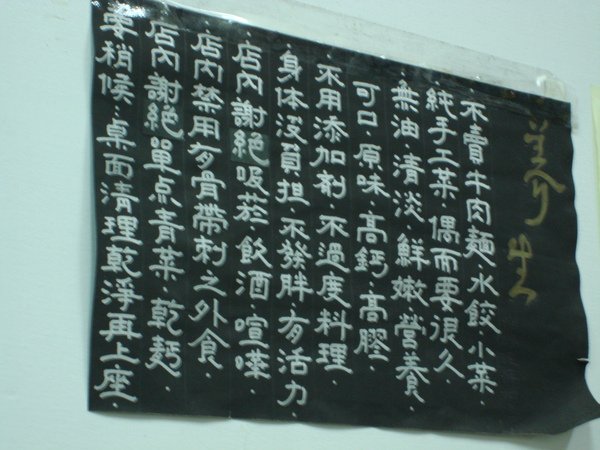 養生
不賣牛肉麵.水餃小菜.
純手工菜.偶而要很久
無油.清淡.鮮嫩.營養.
可口.原味.高鈣.高膠.
不用添加劑.不過度料理.
身体没負.担.不發胖有活力.
店內謝絕吸菸.飲酒喧嘩.
店內禁用有骨帶刺之外食.
店內謝絕單点青菜.乾麵.
要稍候.桌面清理乾淨再上座.